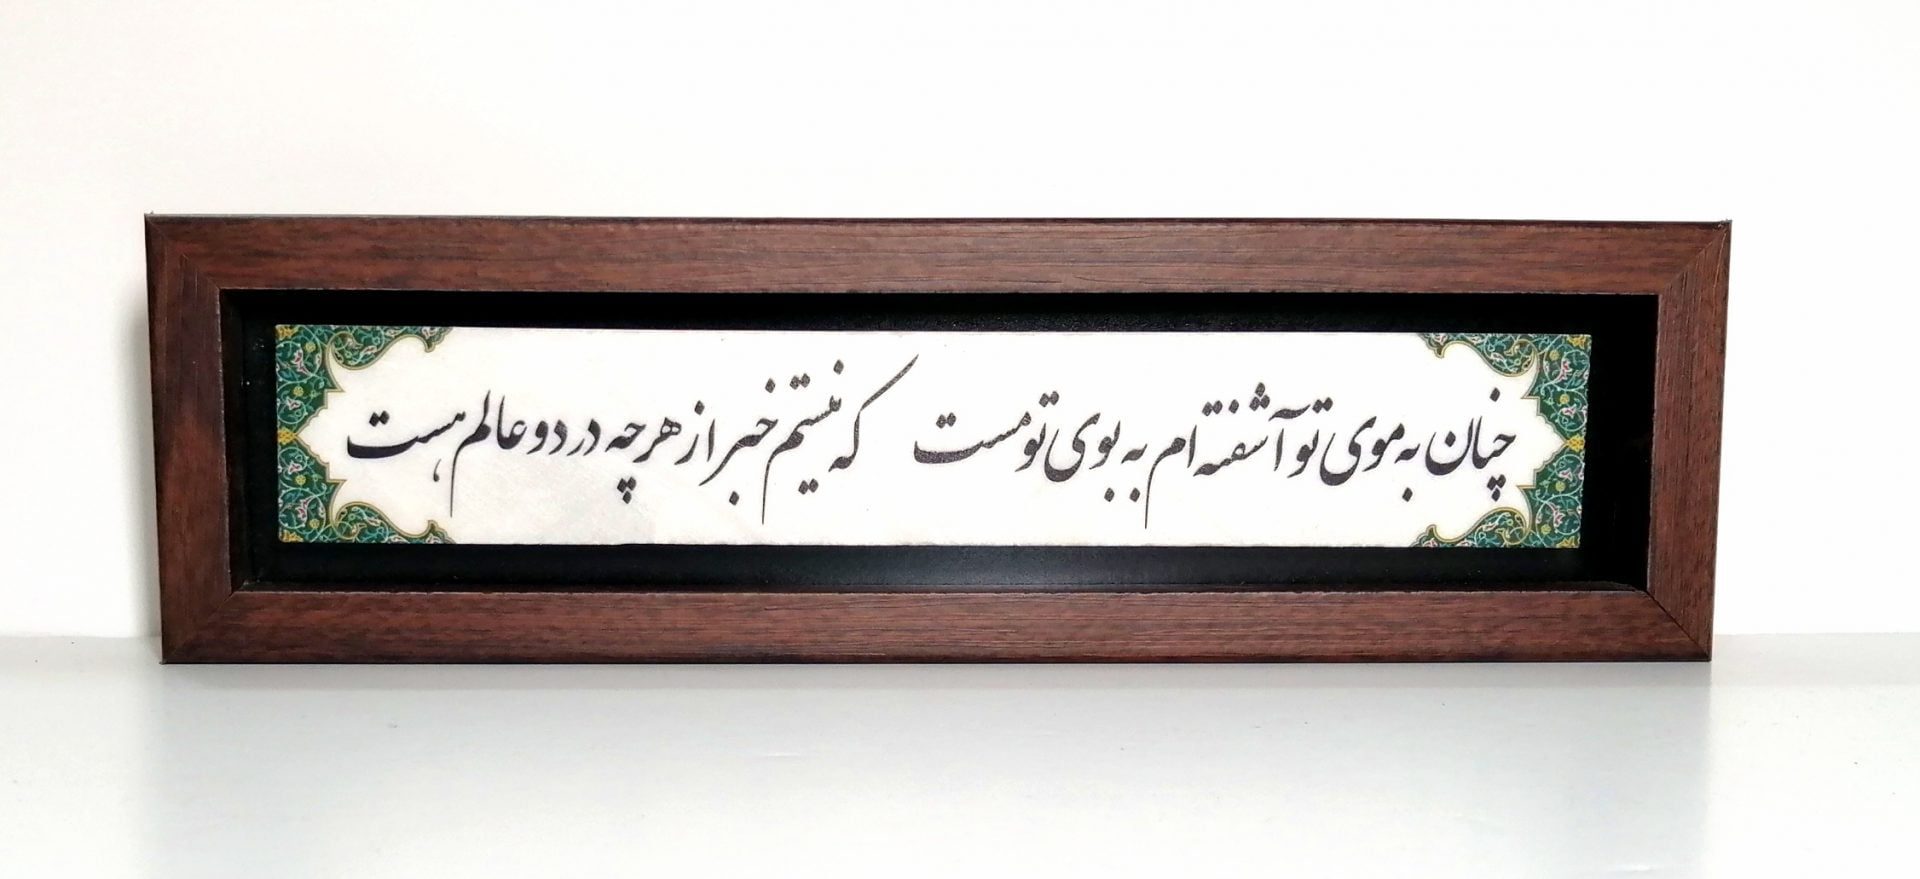 چنان به موی تو آشفته ام به بوی تو مست که نیستم خبر از هر چه در دو عالم هست